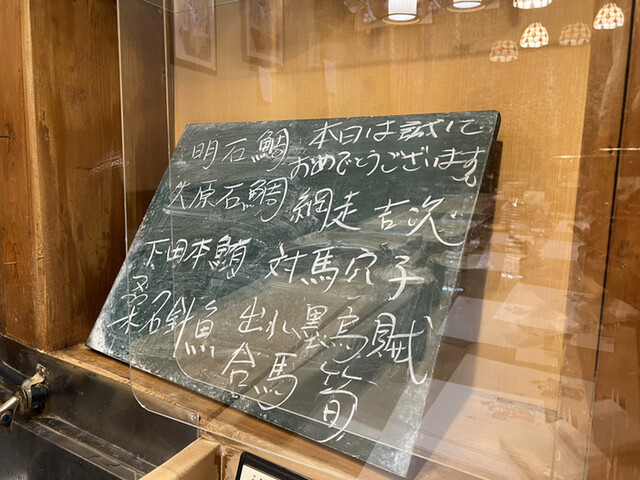 明石鯛
本日は誠にて
おめでとうございます。
大原石鯛
網走 吉次
下田本鮪
対馬穴子
石斜魚
出水墨烏賊
合馬筍